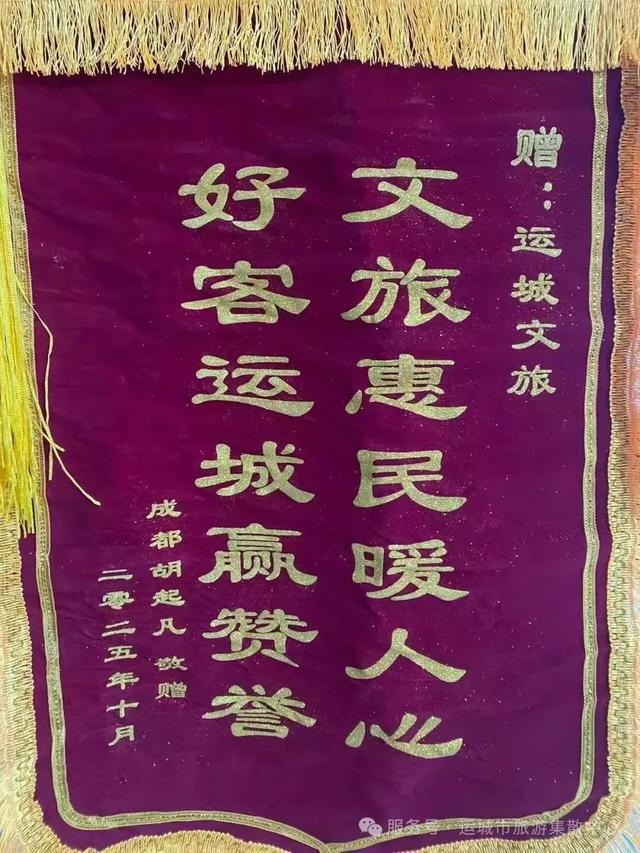 赠：运城文旅
文旅惠民暖人心
好客运城赢赞誉
成都胡起凡 敬赠
二零二五年十月
服务号 · 运城市旅游集散中心